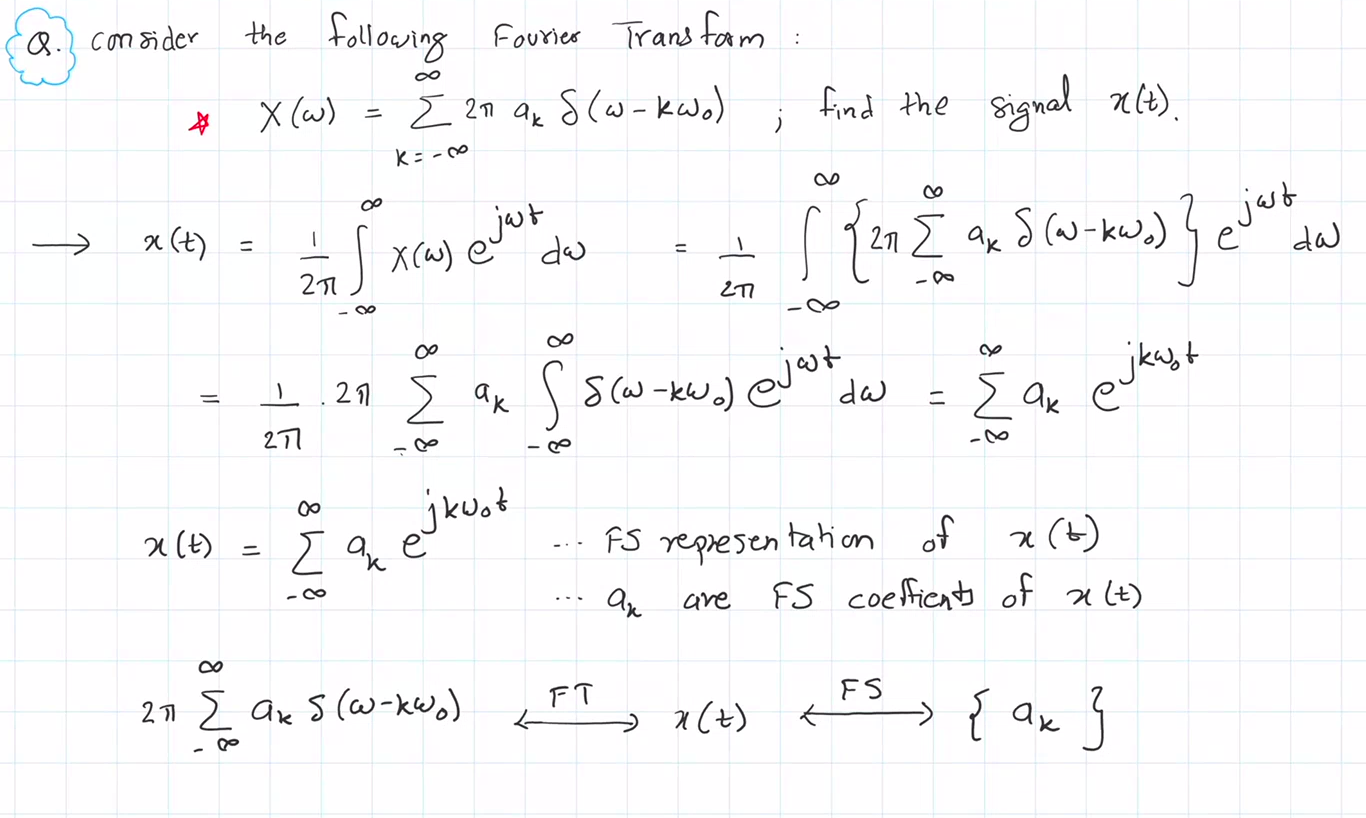 Q. consider the following Fourier Transform :
★ X(ω) = ∑_{k=-∞}^{∞} 2π a_k δ(ω - kω₀) ; find the signal x(t).
→ x(t) = 1/2π ∫_{-∞}^{∞} X(ω) e^{jωt} dω = 1/2π ∫_{-∞}^{∞} { 2π ∑_{-∞}^{∞} a_k δ(ω - kω₀) } e^{jωt} dω
= 1/2π . 2π ∑_{-∞}^{∞} a_k ∫_{-∞}^{∞} δ(ω - kω₀) e^{jωt} dω = ∑_{-∞}^{∞} a_k e^{jkω₀t}
x(t) = ∑_{-∞}^{∞} a_k e^{jkω₀t} ... FS representation of x(t)
... a_k are FS coefficients of x(t)
2π ∑_{-∞}^{∞} a_k δ(ω - kω₀) ⟷^{FT} x(t) ⟷^{FS} { a_k }